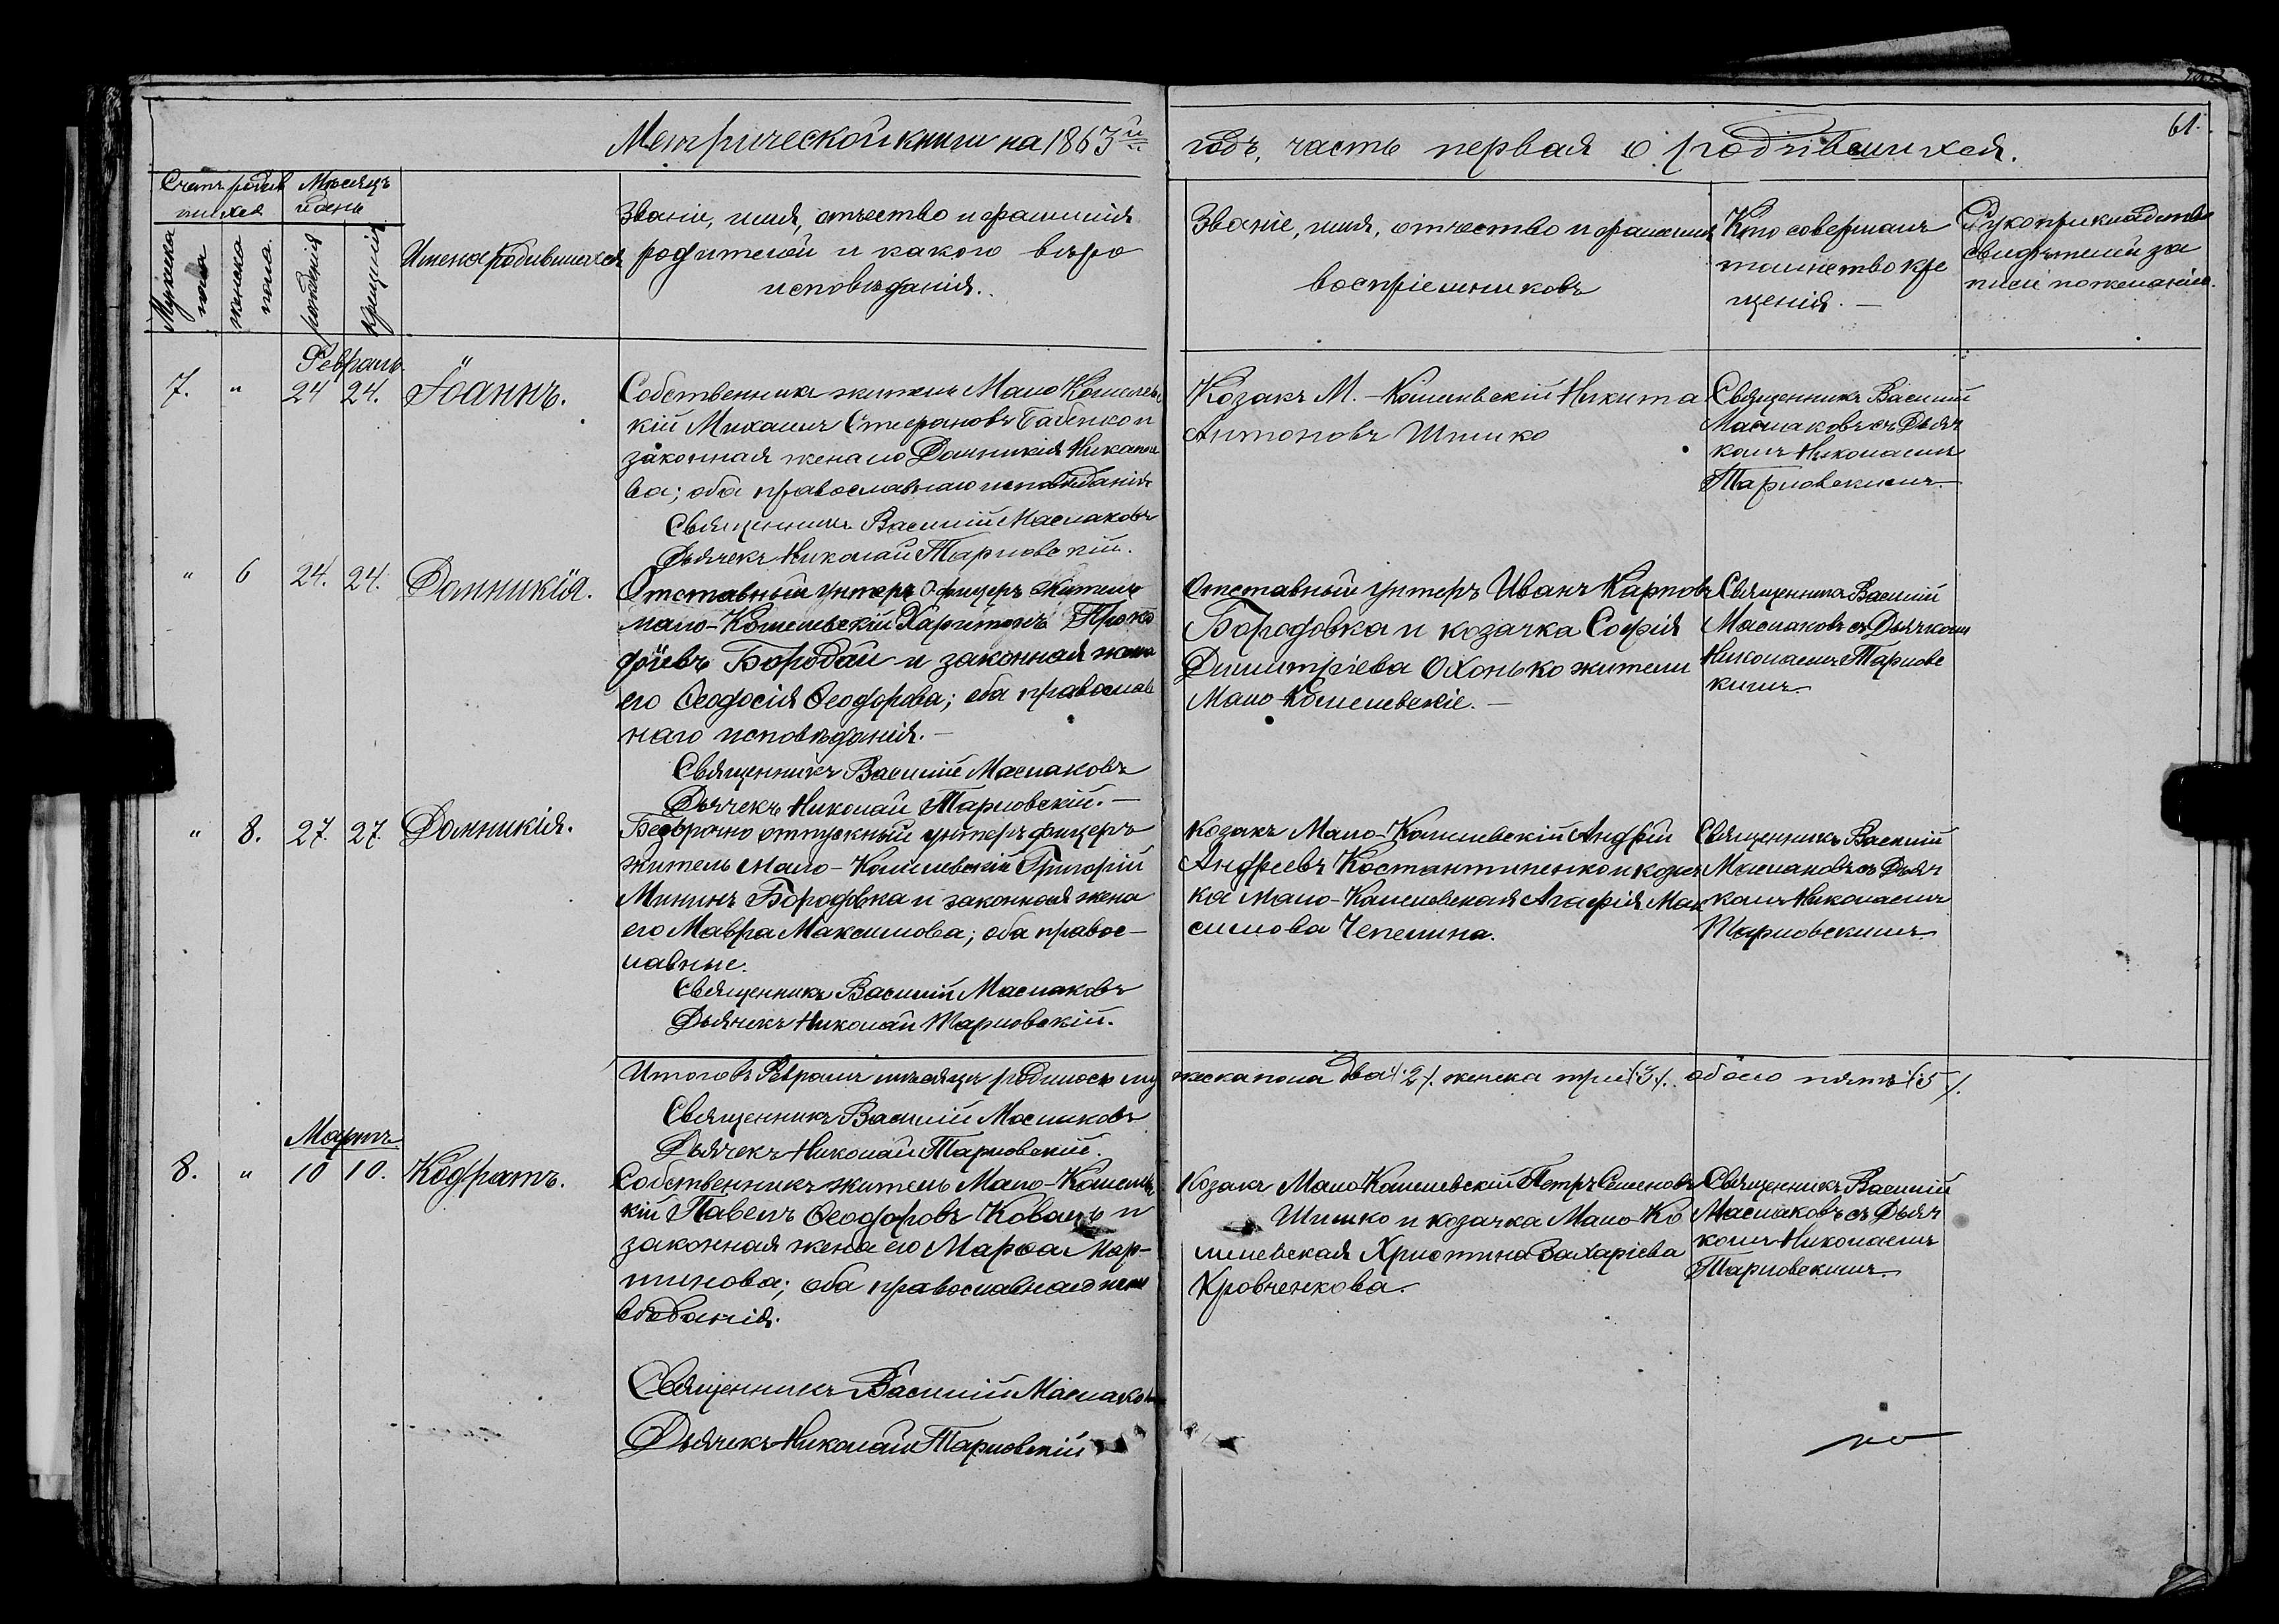 Метрической книги на 1863й годъ, часть первая о родившихся.
61.
Счетъ родив
шихся
Мѣсяцъ
и день
Мужеска
пола
женска
пола.
рожденія
крещенія
Имена родившихся
Званіе, имя, отчество и фамилія
родителей и какого вѣро
исповѣданія.
Званіе, имя, отчество и фамилія
воспріемниковъ
Кто совершалъ
таинство кре
щенія. —
Рукоприкладство
свидѣтелей за
писи по желанію.
Февраль.
7. " 24 24. Іоаннъ.
Собственникъ житель Мало Кошелев
кій Михаилъ Стефановъ Бабенко и
законная жена его Домникія Никано
ва; оба православнаго исповѣданія
Священникъ Василій Маслаковъ
Дьячекъ Николай Тарновскій.
Козакъ М.-Кошелевскій Никита
Антоновъ Шишко
Священникъ Василій
Маслаковъ съ Дьяч
комъ Николаемъ
Тарновскимъ
" 6 24. 24. Домникія.
Отставный унтеръ офицеръ житель
мало-Кошелевскій Харитонъ Проко
фіевъ Бородай и законная жена
его Ѳеодосія Ѳеодорова; оба православ
наго исповѣданія. —
Священникъ Василій Маслаковъ
Дьячекъ Николай Тарновскій. —
Отставный унтеръ Иванъ Карповъ
Бородовка и козачка Софія
Димитріева Охонько жители
Мало Кошелевскіе. —
Священникъ Василій
Маслаковъ съ Дьячкомъ
Николаемъ Тарновс
кимъ
" 8. 27. 27. Домникія.
Безсрочно отпускный унтеръ офицеръ
житель Мало-Кошелевскій Григорій
Мининъ Бородовка и законная жена
его Мавра Максимова; оба правос-
лавные.
Священникъ Василій Маслаковъ
Дьячекъ Николай Тарновскій.
Козакъ Мало-Кошелевскій Андрей
Андреевъ Костантиненко и козач
ка мало-Кошелевская Агафія Мак
симова Чепелина.
Священникъ Василій
Маслаковъ съ Дьяч
комъ Николаемъ
Тарновскимъ
Итого въ Февралѣ мѣсяцѣ родилось му жеска пола два /2/. женска три /3/. обоего пять /5/.
Священникъ Василій Маслаковъ
Дьячекъ Николай Тарновскій.
Мартъ
8. " 10 10. Кодратъ.
Собственникъ житель Мало-Кошелевс
кій Павелъ Ѳеодоровъ Коваль и
законная жена его Марѳа Мар-
тинова; оба православнаго испо
вѣданія.
Священникъ Василій Маслаковъ
Дьячекъ Николай Тарновскій
Козакъ Мало Кошелевскій Петръ Семеновъ
Шишко и козачка Мало-Ко
шелевская Христина Захаріева
Кровченкова.
Священникъ Василій
Маслаковъ съ Дьяч
комъ Николаемъ
Тарновскимъ.
по